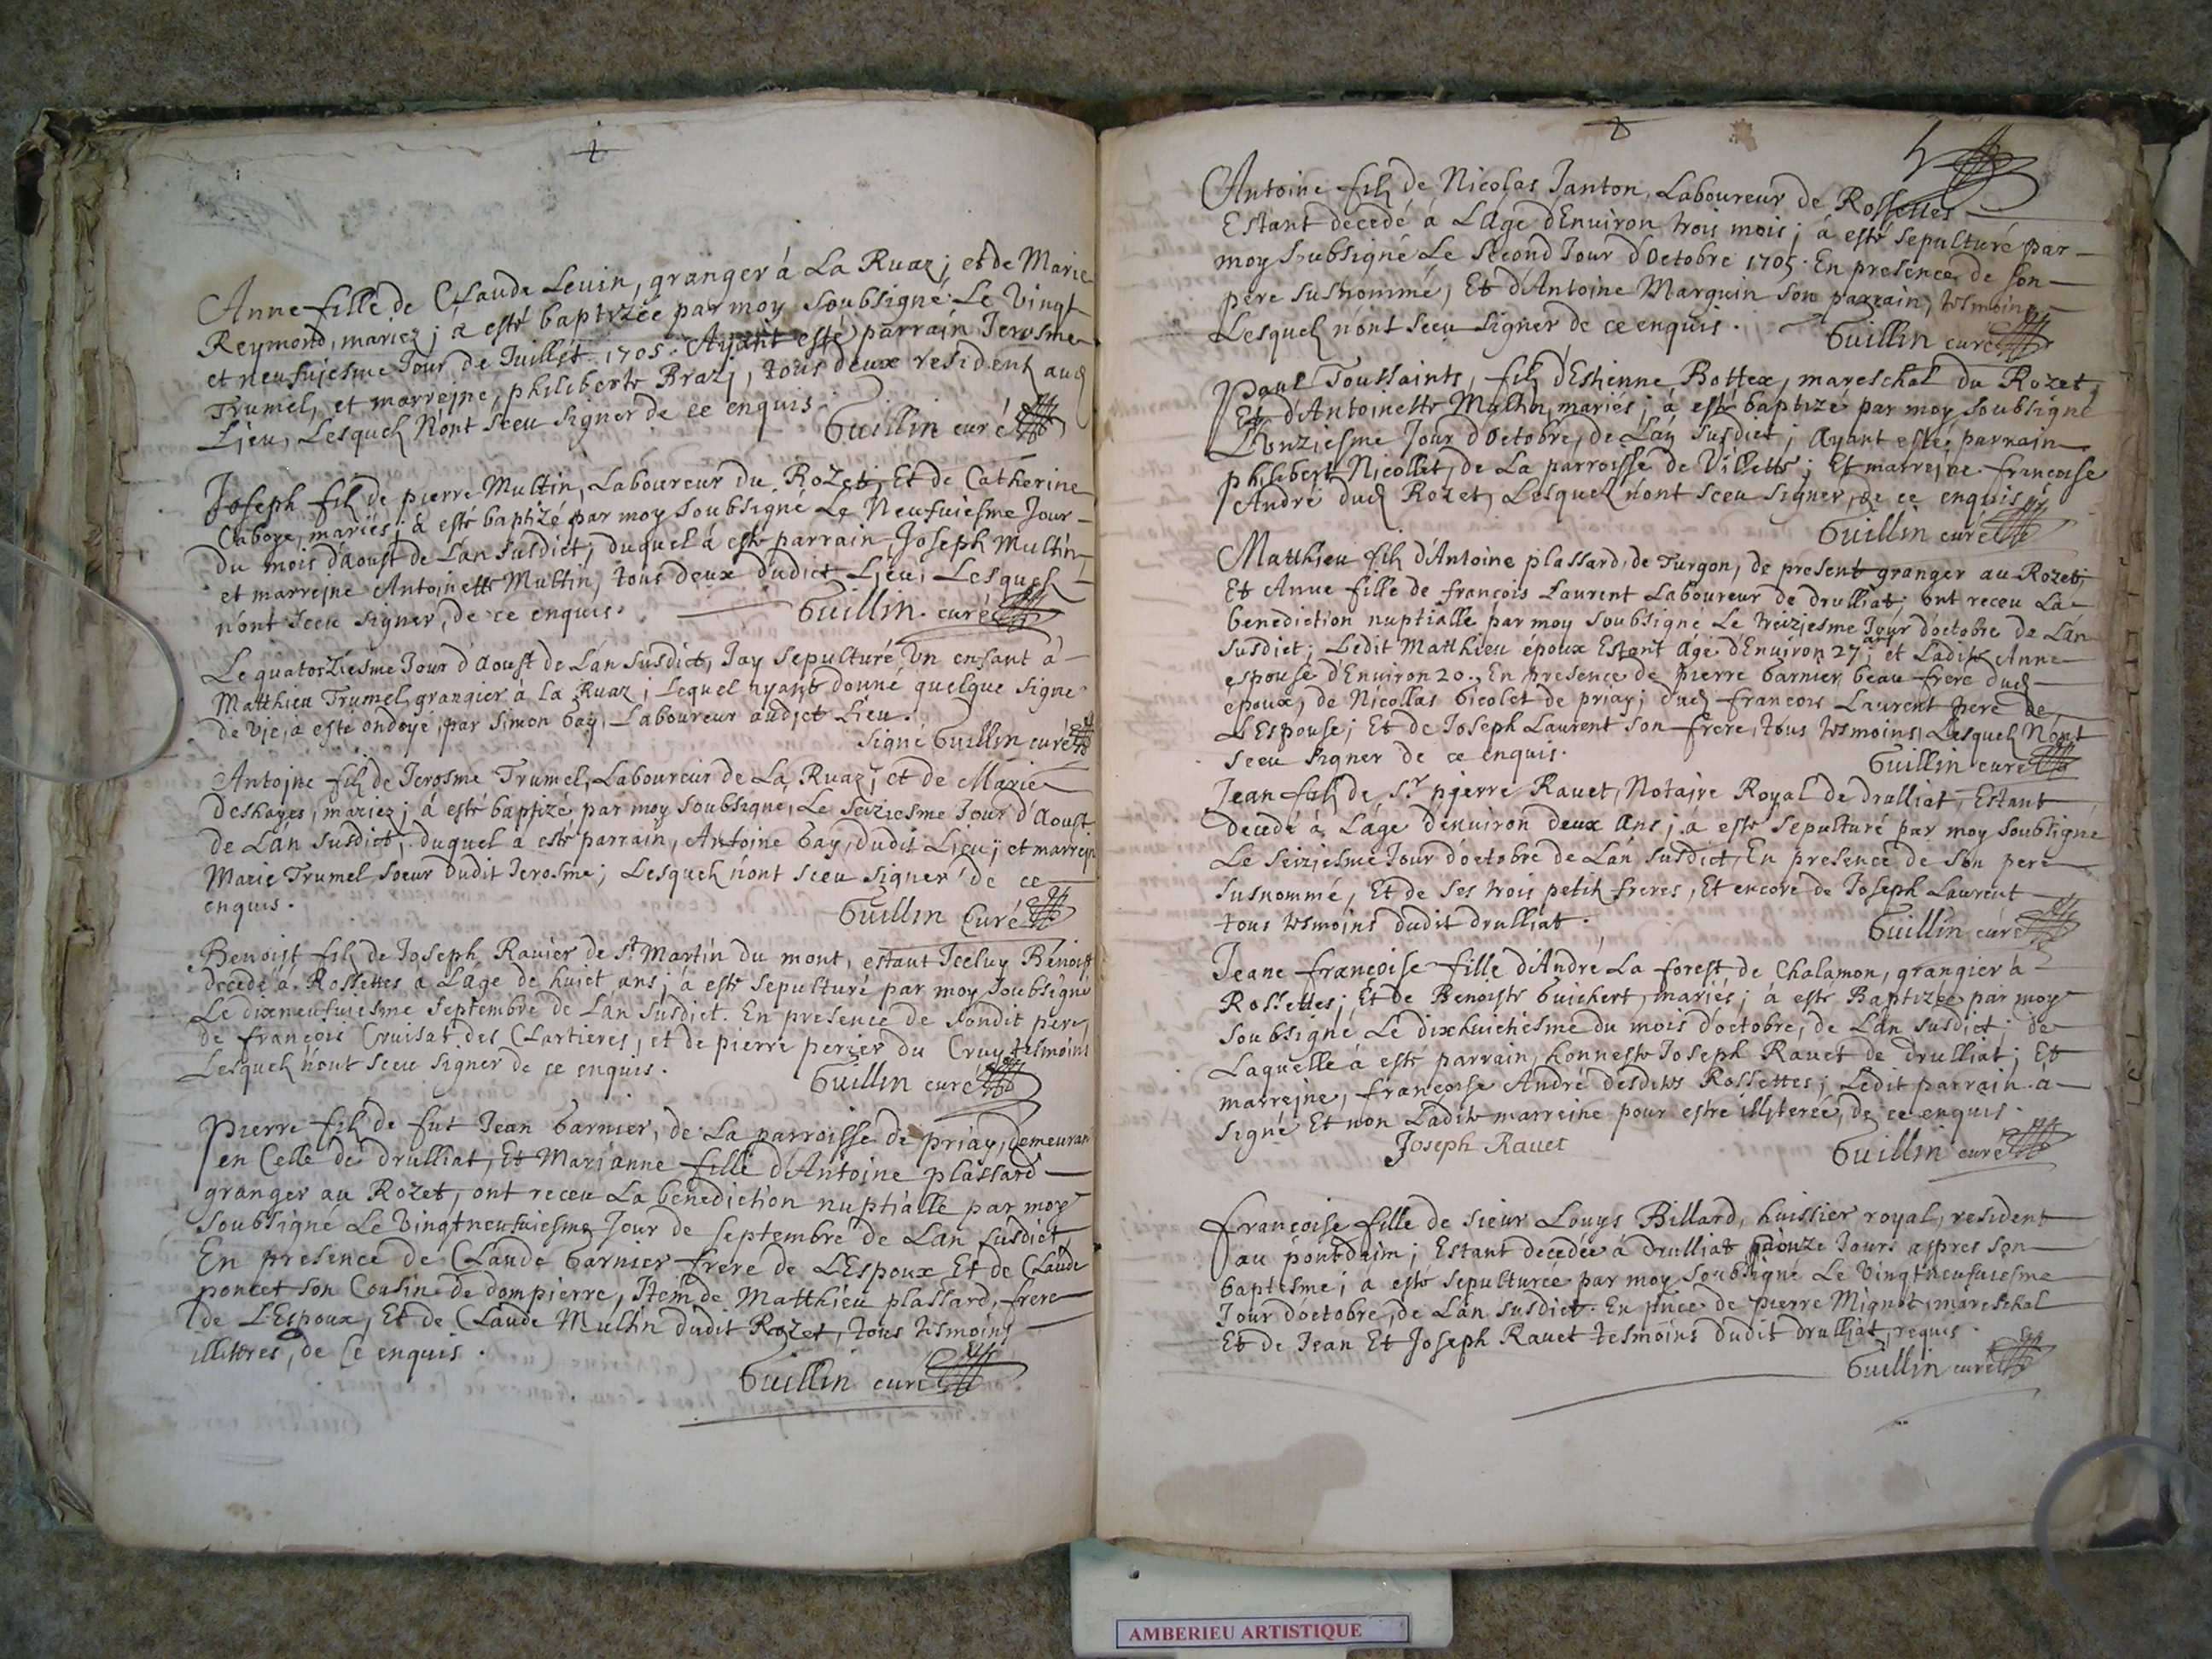 Anne fille de Claude Levin, granger á La Ruaz; et de Marie
Reymond, mariez; á esté baptizée par moy soubsigné Le Vingt
et neufuiesme Jour de Juillet 1705. Ayant esté parrain Jerosme
Trumel, et marrejne, philiberte Brazj, tous deux resident aud
Ljeu, Lesquelz n'ont sceu signer de ce enquis.
Guillin curé
Joseph filz de pierre Multin, Laboureur du Rozet; Et de Catherine
Caboye, mariés; á esté baptizé par moy soubsigné Le Neufuiesme Jour
du mois d'Aoust de L'an susdict; duquel á esté parrain Joseph Multin
et marrejne Antoinette Multin, tous deux dudict Ljeu, Lesquelz
n'ont sceu signer, de ce enquis.
Guillin curé
Le quatorziesme Jour d'Aoust de L'an susdict, Jay sepulturé Un enfant á
Matthieu Trumel, grangier à La Ruaz; Lequel ayant donné quelque signe
de Vie, à esté ondoyé, par Simon Gay, Laboureur audict Lieu.
signé Guillin curé
Antojne filz de Jerosme Trumel, Laboureur de La Ruaz; et de Marie
Deshayes, mariez; á esté baptizé par moy soubsigné, Le seiziesme Jour d'Aoust
de L'an susdict; duquel a esté parrain, Antoine Gay, dudit Lieu; et marrejn
Marie Trumel soeur dudit Jerosme; Lesquelz n'ont sceu signer de ce
enquis.
Guillin Curé
Benoist filz de Joseph Ravier de St Martin du mont, estant Jceluy Bénoist
décedé á Rossettes a L'áge de huict ans; á esté sepulturé par moy soubsigné
Le dixneufuiesme septembre de L'an susdict. En presence de sondit pere,
de françois Cruisat des Clartieres, et de pierre perier du Cruy tesmoins
Lesquelz n'ont sceu signer de ce enquis.
Guillin curé
Pierre filz de fut Jean Garnier, de La parroisse de priay, demeurant
en Celle de drulliat, Et Marianne fille d'Antoine plassard
granger au Rozet, ont receu La benediction nuptialle par moy
soubsigné Le Vingtneufuiesme Jour de septembre de L'an susdict,
En presence de Claude Garnier frere de L'Espoux Et de Claude
poncet son Cousin de dompierre, Item de Matthieu plassard, frere
de L'Espoux, Et de Claude Multin dudit Rozet, tous tesmoins
illittres, de Ce enquis.
Guillin curé
Antoine filz de Nicolas Janton, Laboureur de Rossettes
Estant decedé á L'áge d'Enuiron trois mois; á esté sepulturé par
moy soubsigné Le second Jour d'Octobre 1705. En presence de son
pere susnommé, Et d'Antoine Marquin son parrain, tesmoins
Lesquelz n'ont sceu signer de ce enquis.
Guillin curé
Paul Toussaints, filz d'Estienne Bottex, mareschal du Rozet,
Et d'Antoinette Multin, mariés; á esté baptizé par moy soubsigné
L'Onziesme Jour d'Octobre, de L'an susdict; ayant esté parrain
philebert Nicollet, de La parroisse de Villette; Et marrejne francoise
André dud Rozet, Lesquelz n'ont sceu signer, de ce enquis.
Guillin curé
Matthieu filz d'Antoine plassard, de Turgon, de present granger au Rozet;
Et Anne fille de françois Laurent Laboureur de drulliat; ont receu La
benediction nuptialle par moy soubsigné Le treizjesme Jour d'octobre de L'an
susdict; Ledit Matthieu époux Estant ágé d'Enuiron 27 ans; et Ladite Anne
espouse d'Enuiron 20. En presence de pierre Garnier beau frere dud
epoux, de Nicollas Gicolet de priay; dud françois Laurent pere de
L'Espouse; Et de Joseph Laurent son frere, tous tesmoins, Lesquelz N'ont
sceu signer de ce enquis.
Guillin curé
Jean filz de Sr pjerre Ravet, Notajre Royal de drulliat, Estant
décedé á L'áge d'enuiron deux ans; á esté sepulturé par moy soubsigné
Le seizjesme Jour d'octobre de L'an susdict, En presence de son pere
susnommé, Et de ses trois petitz freres, Et encore de Joseph Laurent
tous tesmoins dudit drulliat.
Guillin curé
Jeane françoise fille d'André La forest de Chalamon, grangier á
Rossettes; Et de Benoiste Guichert, mariés; á esté Baptizée par moy
soubsigné Le dixhuictiesme du mois d'octobre, de L'an susdict; de
Laquelle á esté parrain, honneste Joseph Ravet de drulliat; Et
marrejne, françoise André desdites Rossettes; Ledit parrain á
signé Et non Ladite marreine pour estre illyterée, de ce enquis.
Joseph Ravet
Guillin curé
françoise fille de sieur Louys Billard, huissier royal, resident
au pont d'aim; Estant decedée á drulliat onze Jours aspres son
baptesme; á esté sepulturée par moy soubsigné Le Vingtneufuiesme
Jour d'octobre, de L'an susdict. En pnce de pierre Mignot, mareschal
Et de Jean Et Joseph Ravet tesmoins dudit drulljat, requis.
Guillin curé
AMBERIEU ARTISTIQUE